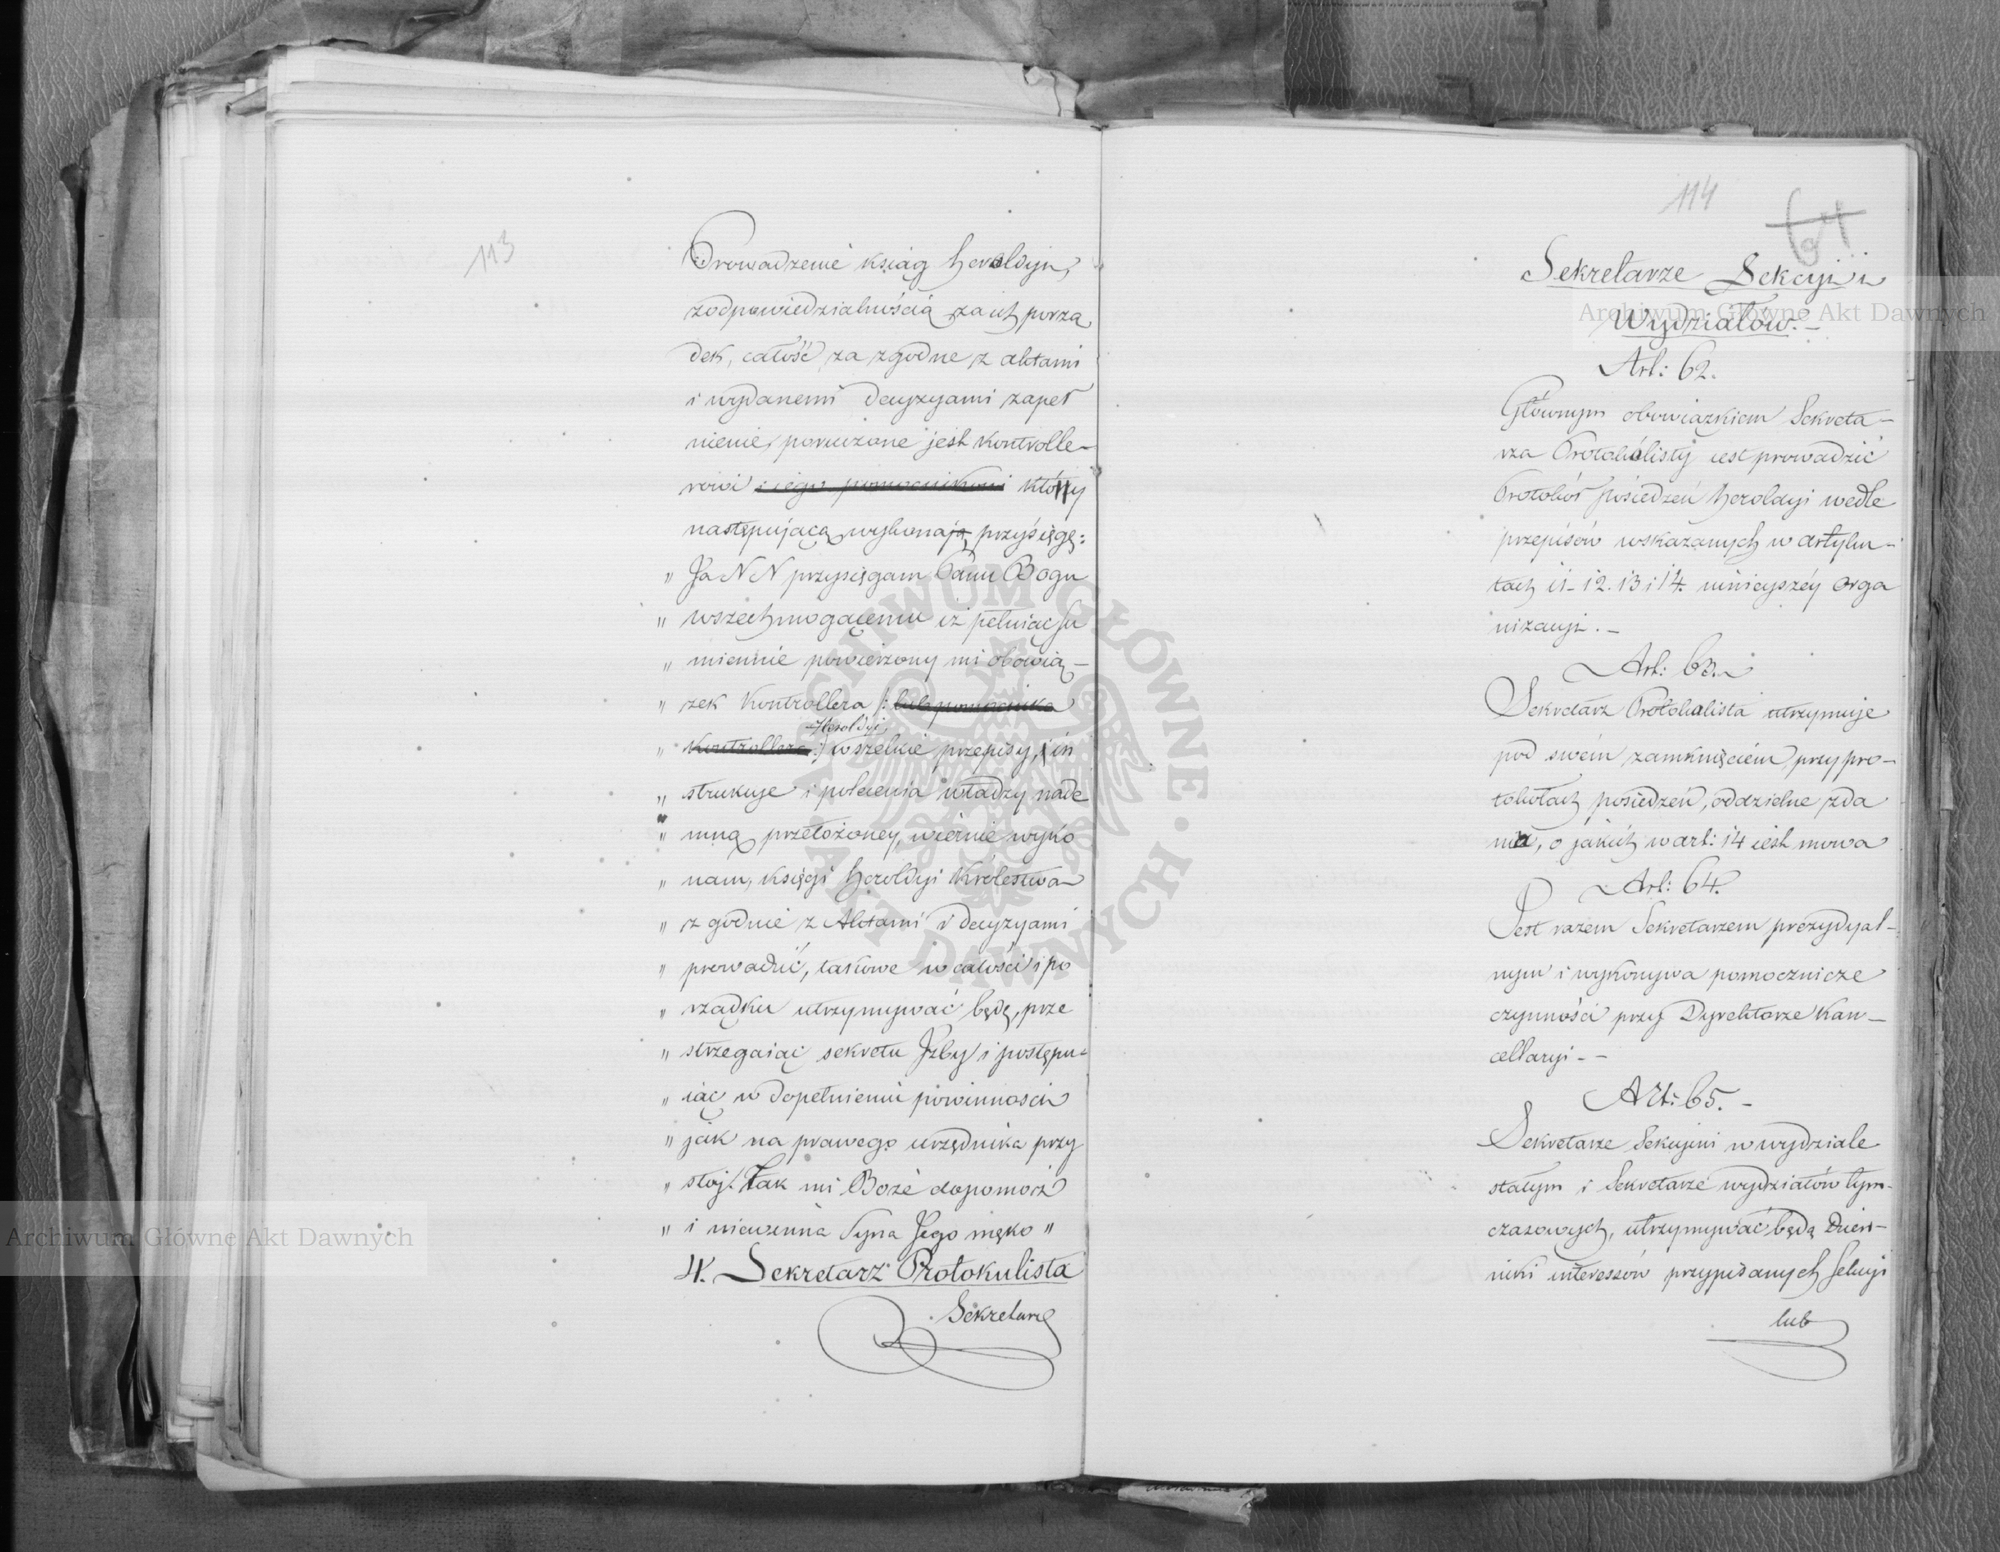 113
Prowadzenie ksiąg heroldyi,
z odpowiedzialnością za ich porzą
dek, całość, za zgodne z aktami
i wydanemi decyzyami zapeł
nienie, poruczone jest Kontrolle-
rowi i jego pomocnikowi który
następującą wykonają przysięgę:
„ Ja NN przysięgam Panu Bogu
„ wszechmogącemu iż pełniąc su
„ miennie powierzony mi obowią-
„ zek Kontrollera /: lub pomocnika
Heroldyi,
„ Kontrollera :/ wszelkie przepisy, i in
„ strukcje i polecenia władzy nade
„ mną przełożoney, wiernie wyko
„ nam, księgi heroldyi Królestwa
„ zgodnie z Aktami i decyzyami
„ prowadzić, takowe w całości i po
„ rządku utrzymywać będę, prze
„ strzegaiąc sekretu Izby i postępu-
„ iąc w dopełnieniu powinności
„ jak na prawego urzędnika przy
„ stoj. Tak mi Boże dopomóż
„ i niewinna Syna Jego męko "
4. Sekretarz Protokulista
Sekretarz
114
64
Sekretarze Sekcyi i
Wydziałów.-
Art: 62.
Głównym obowiązkiem Sekreta-
rza Protokólisty iest prowadzić
Protokół posiedzeń heroldyi wedle
przepisów wskazanych w artyku-
łach 11-12. 13 i 14. niniejszéy orga
nizacyi.-
Art: 63.
Sekretarz Protokalista utrzymuje
pod swém zamknięciem przy pro-
tokołach posiedzeń, oddzielne zda
nia, o jakich w art: 14 iest mowa
Art: 64.
Jest razem Sekretarzem prezydyal-
nym i wykonywa pomocnicze
czynności przy Dyrektorze Kan-
cellaryi.-
Art: 65.-
Sekretarze Sekcyini w wydziale
stałym i Sekretarze wydziałów tym-
czasowych, utrzymywać będą Dzien-
niki interessów przypisanych Sekcyi
lub
Archiwum Główne Akt Dawnych
Archiwum Główne Akt Dawnych
ARCHIWUM GŁÓWNE · AKT DAWNYCH ·